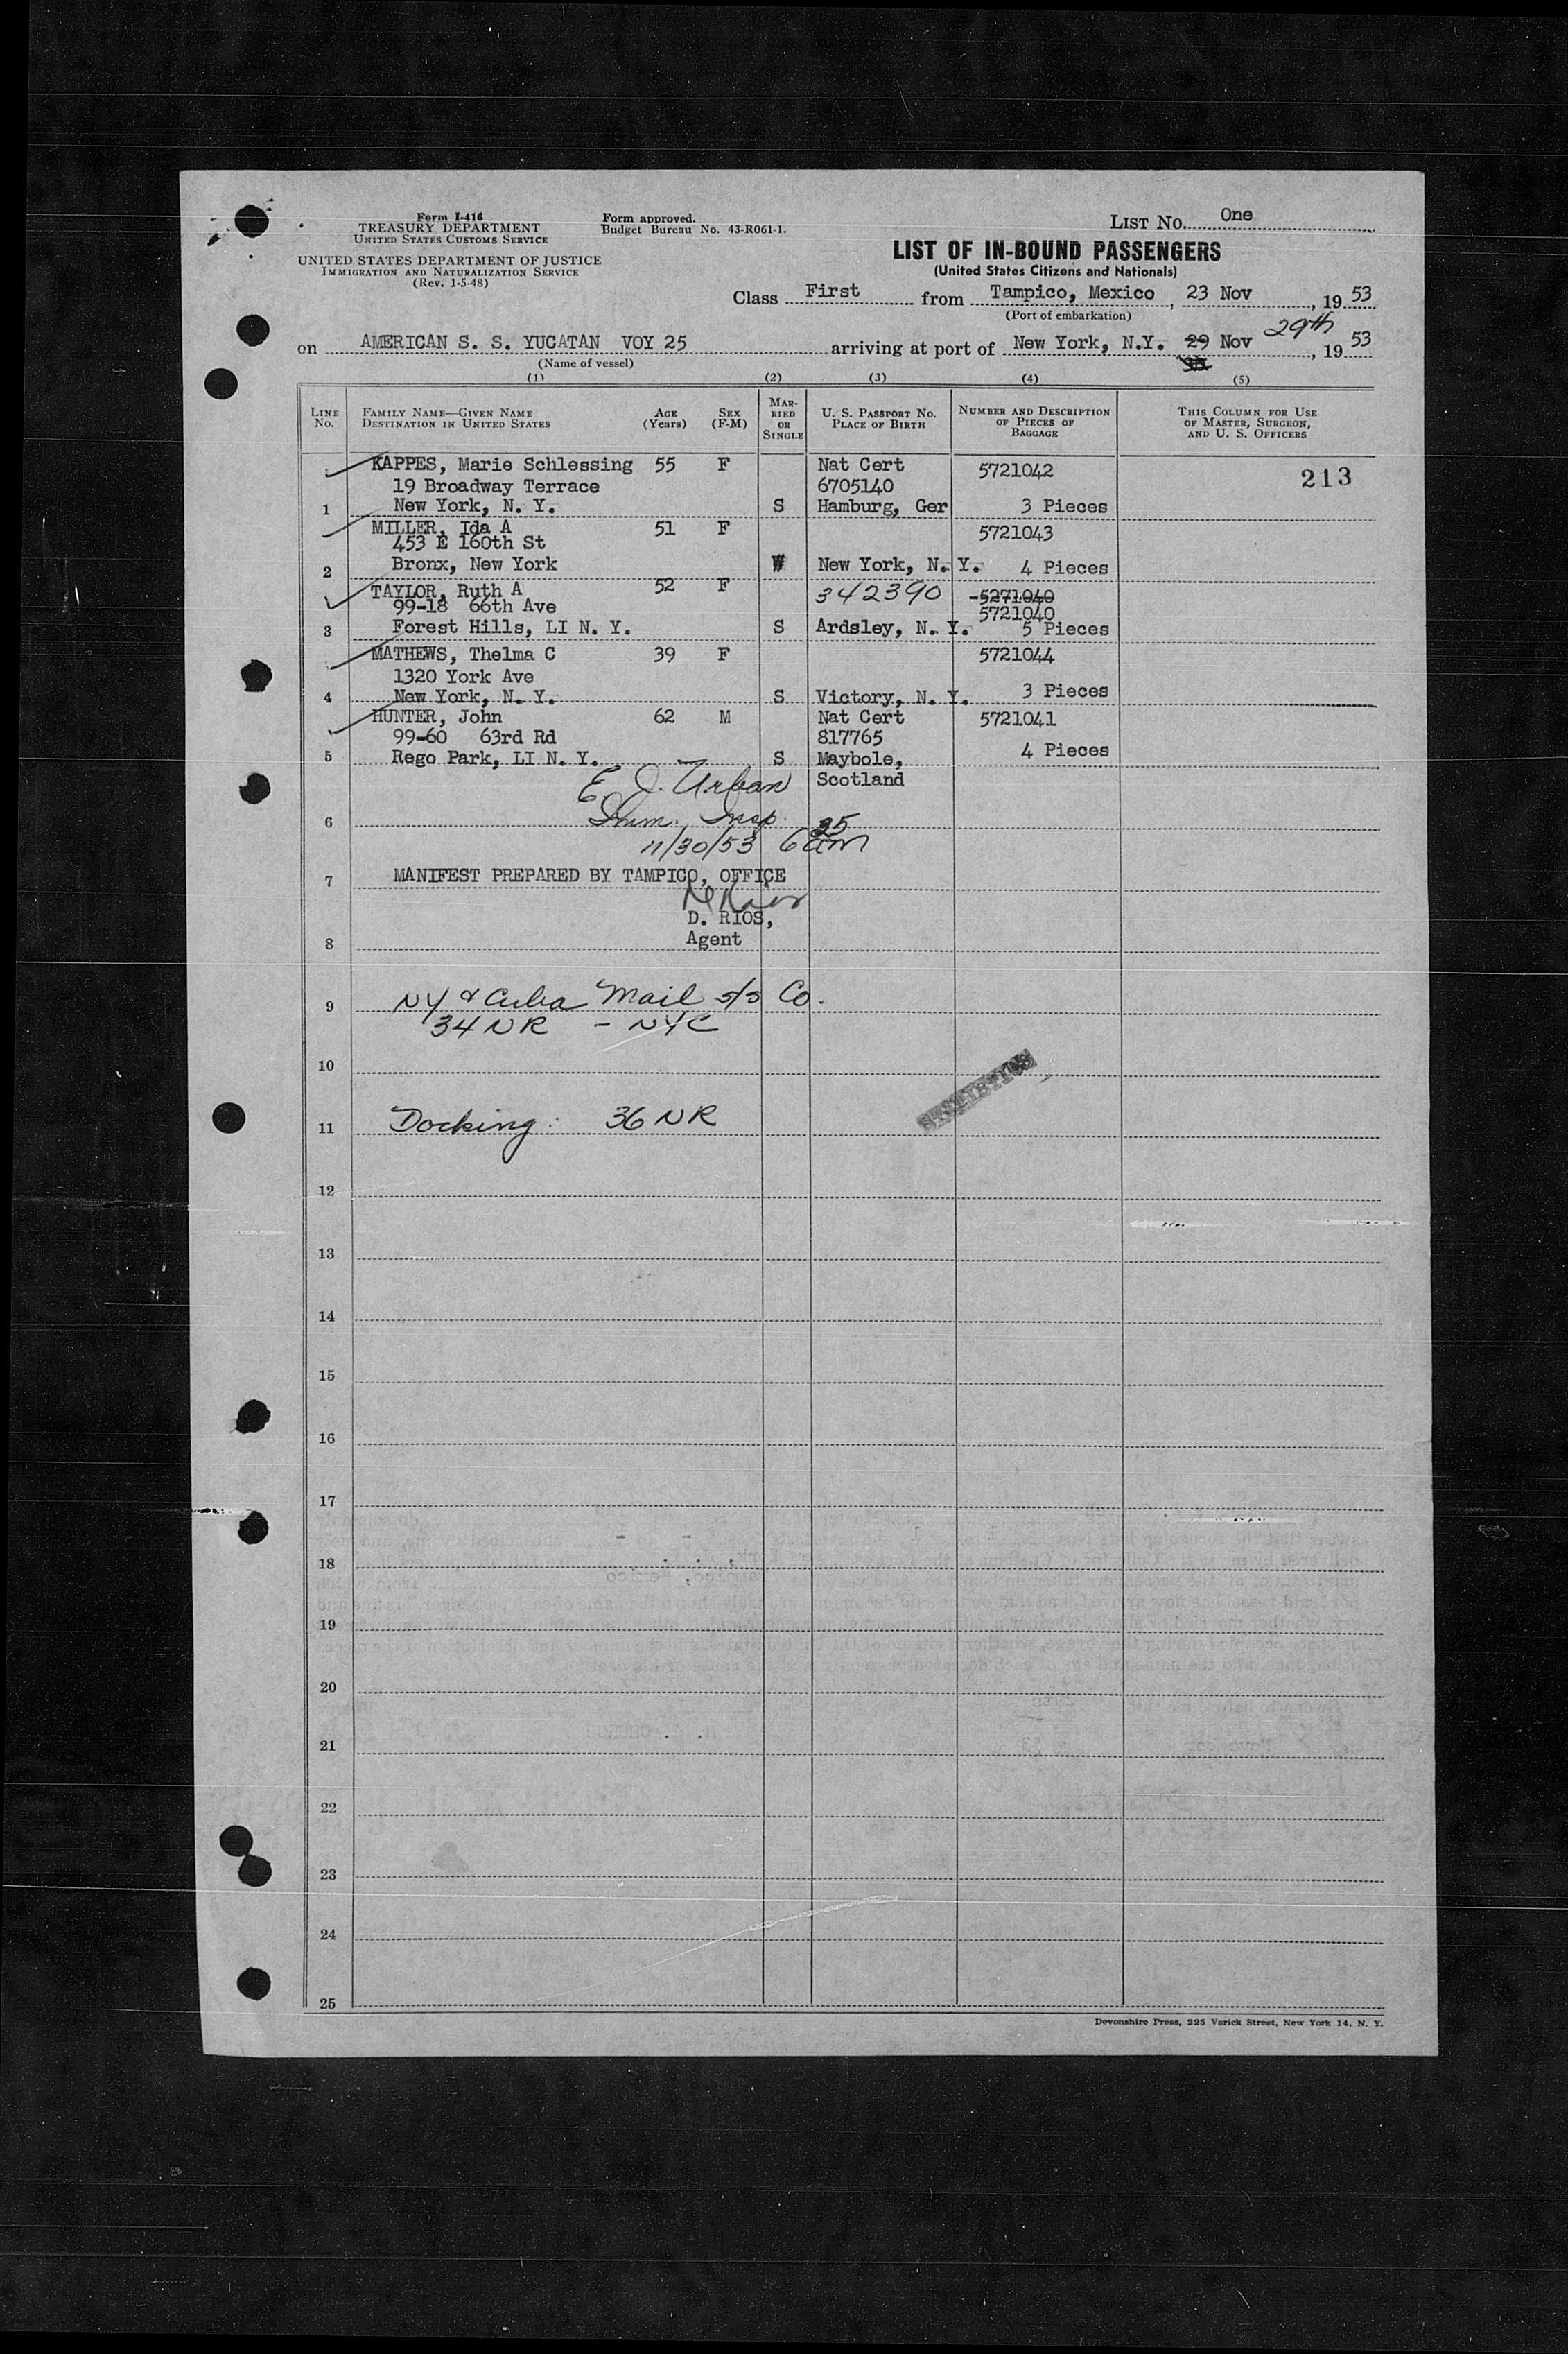 Form I-416
TREASURY DEPARTMENT
UNITED STATES CUSTOMS SERVICE
UNITED STATES DEPARTMENT OF JUSTICE
IMMIGRATION AND NATURALIZATION SERVICE
(Rev. 1-5-48)
Form approved.
Budget Bureau No. 43-R061-1.
LIST No. One
LIST OF IN-BOUND PASSENGERS
(United States Citizens and Nationals)
Class First from Tampico, Mexico, 23 Nov, 19 53
(Port of embarkation)
on AMERICAN S. S. YUCATAN VOY 25 arriving at port of New York, N.Y. 29 Nov 29th, 19 53
(Name of vessel)
(1) (2) (3) (4) (5)
LINE No. FAMILY NAME—GIVEN NAME DESTINATION IN UNITED STATES AGE (Years) SEX (F-M) MARRIED OR SINGLE U. S. PASSPORT NO. PLACE OF BIRTH NUMBER AND DESCRIPTION OF PIECES OF BAGGAGE THIS COLUMN FOR USE OF MASTER, SURGEON, AND U. S. OFFICERS
KAPPES, Marie Schlessing 55 F Nat Cert 5721042 213
19 Broadway Terrace 6705140
1 New York, N. Y. S Hamburg, Ger 3 Pieces
MILLER, Ida A 51 F 5721043
453 E 160th St
2 Bronx, New York W New York, N. Y. 4 Pieces
TAYLOR, Ruth A 52 F 342390 5271040
99-18 66th Ave 5721040
3 Forest Hills, LI N. Y. S Ardsley, N. Y. 5 Pieces
MATHEWS, Thelma C 39 F 5721044
1320 York Ave
4 New York, N. Y. S Victory, N. Y. 3 Pieces
HUNTER, John 62 M Nat Cert 5721041
99-60 63rd Rd 817765
5 Rego Park, LI N. Y. S Maybole, 4 Pieces
Scotland
E. J. Urban
6 Imm. Insp.
11/30/53 6 25 am
7 MANIFEST PREPARED BY TAMPICO, OFFICE
D Rios
D. RIOS,
8 Agent
9 NY & Cuba Mail S/S Co.
34 NR - NYC
10
11 Docking: 36 NR
12
13
14
15
16
17
18
19
20
21
22
23
24
25
Devonshire Press, 225 Varick Street, New York 14, N. Y.